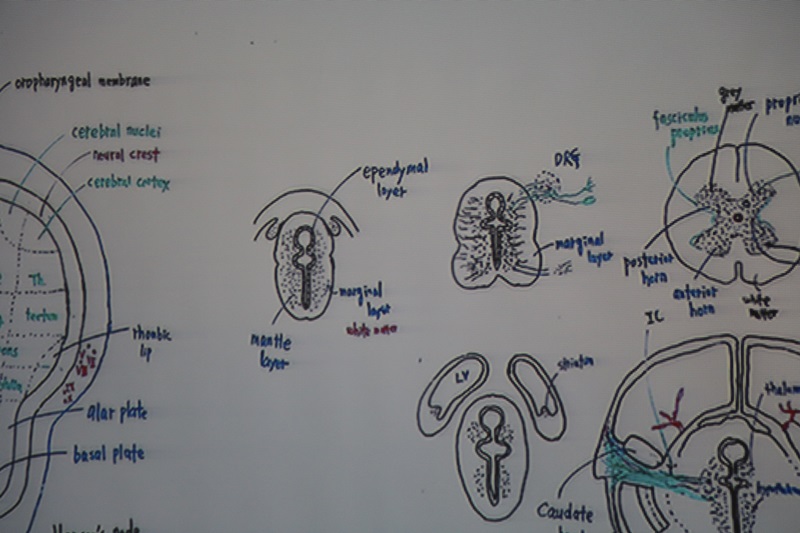 oropharyngeal membrane
cerebral nuclei
neural crest
cerebral cortex
Th.
tectum
rhombic
lip
alar plate
basal plate
ependymal
layer
mantle
layer
marginal
layer
white matter
DRG
marginal
layer
fasciculus
proprius
grey
matter
posterior
horn
anterior
horn
white
matter
LV
striatum
IC
Caudate